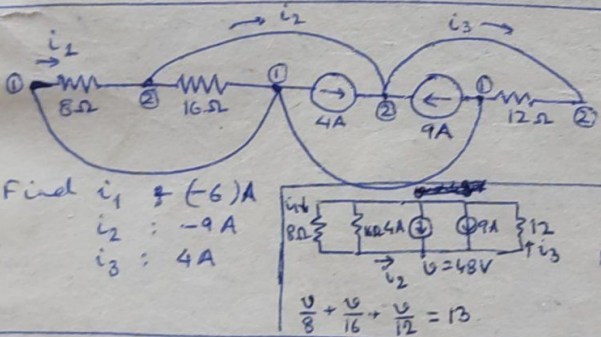 i1 → i2 → i3 →
① 8Ω ② 16Ω ① 4A ② 9A ① 12Ω ②
Find i1 (-6)A
i2 : -9A
i3 : 4A
8Ω 4A 9A 12
i2 → v=48V ↑i3
v/8 + v/16 + v/12 = 13